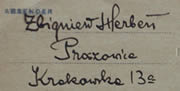 ABSENDER
Zbigniew Herbert
Proszowice
Krakowska 13a